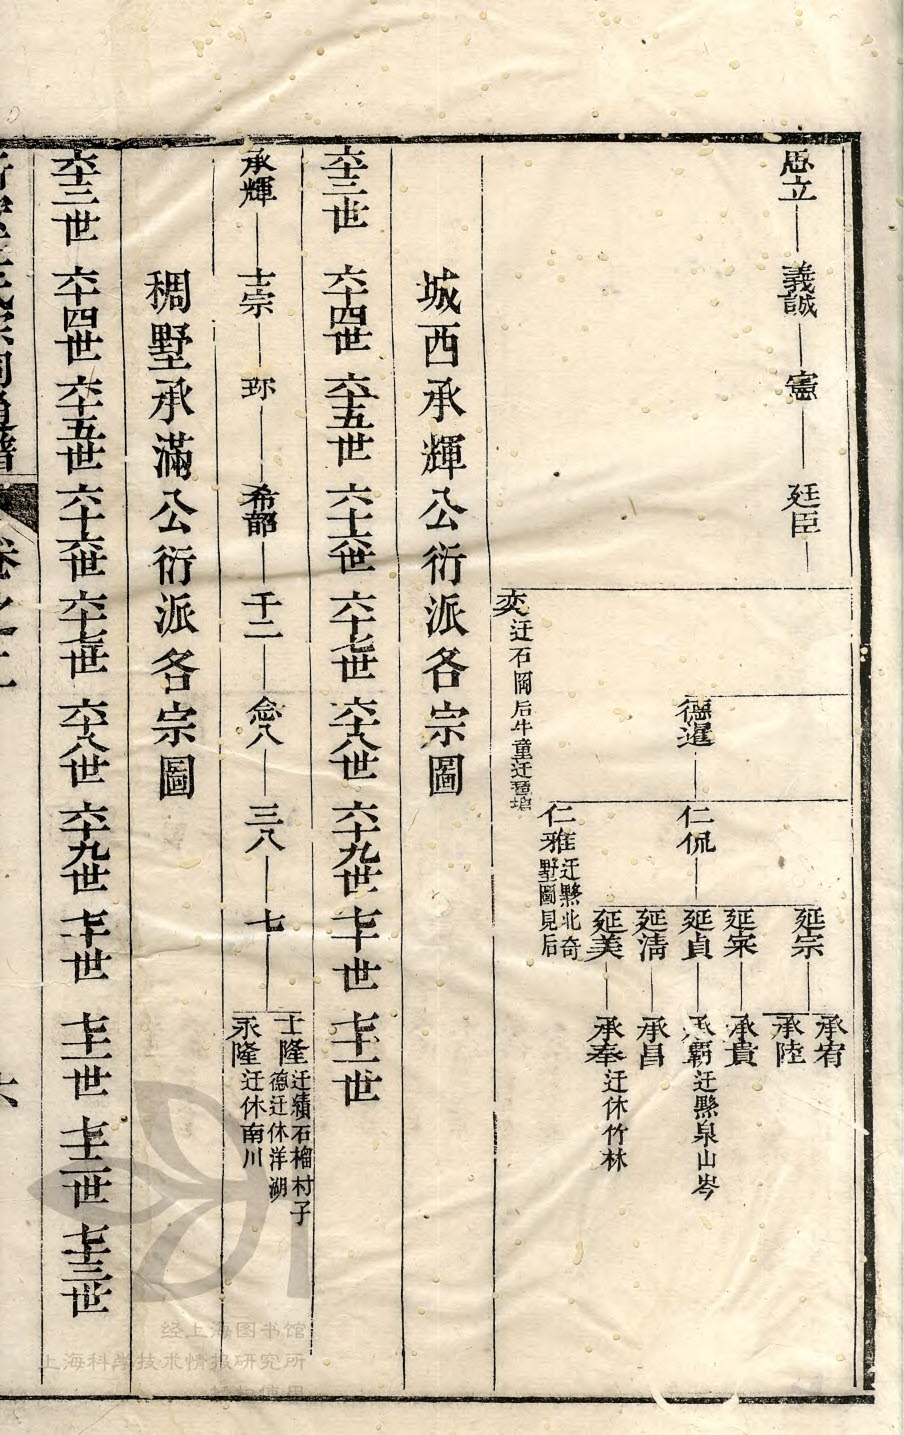 思立
義誠
憲
廷臣
德暹
仁侃
延宗
承宥
承陸
延寀
承貴
延貞
承霸迁黟泉山岑
延清
承昌
延美
承奉迁休竹林
仁雅迁黟北奇
墅圖見后
奕迁石岡后牛童迁
城西承輝公衍派各宗圖
六十三世 六十四世 六十五世 六十六世 六十七世 六十八世 六十九世 七十世 七十一世
承輝
士宗
珎
希韶
千二
念八
三八
七
士隆迁績石榴村子
德迁休洋湖
永隆迁休南川
稠墅承滿公衍派各宗圖
六十三世 六十四世 六十五世 六十六世 六十七世 六十八世 六十九世 七十世 七十一世 七十二世 七十三世
氏宗祠通譜
卷之二
六
经上海图书馆
上海科学技术情报研究所
授权使用